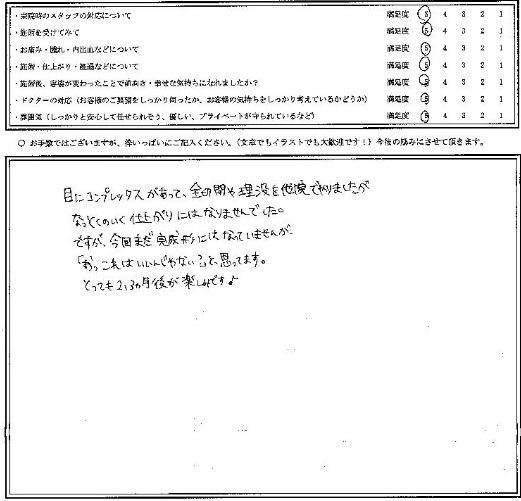 ・来院時のスタッフの対応について 満足度 5 4 3 2 1
・施術を受けてみて 満足度 5 4 3 2 1
・お痛み・腫れ・内出血などについて 満足度 5 4 3 2 1
・施術・仕上がり・経過などについて 満足度 5 4 3 2 1
・施術後、容姿が変わったことで前向き・幸せな気持ちになれましたか? 満足度 5 4 3 2 1
・ドクターの対応(お客様のご要望をしっかり伺ったか、お客様の気持ちをしっかり考えているかどうか) 満足度 5 4 3 2 1
・雰囲気(しっかりと安心して任せられそう、優しい、プライベートが守られているなど) 満足度 5 4 3 2 1
○ お手数ではございますが、枠いっぱいにご記入ください。(文章でもイラストでも大歓迎です!)今後の励みにさせて頂きます。
目にコンプレックスがあって、全切開や埋没を他院でやりましたが
なっとくのいく仕上がりにはなりませんでした。
ですが、今回まだ完成形にはなっていませんが、
「おっこれはいいんじゃない?」と思ってます。
とっても2,3ヵ月後が楽しみです♪